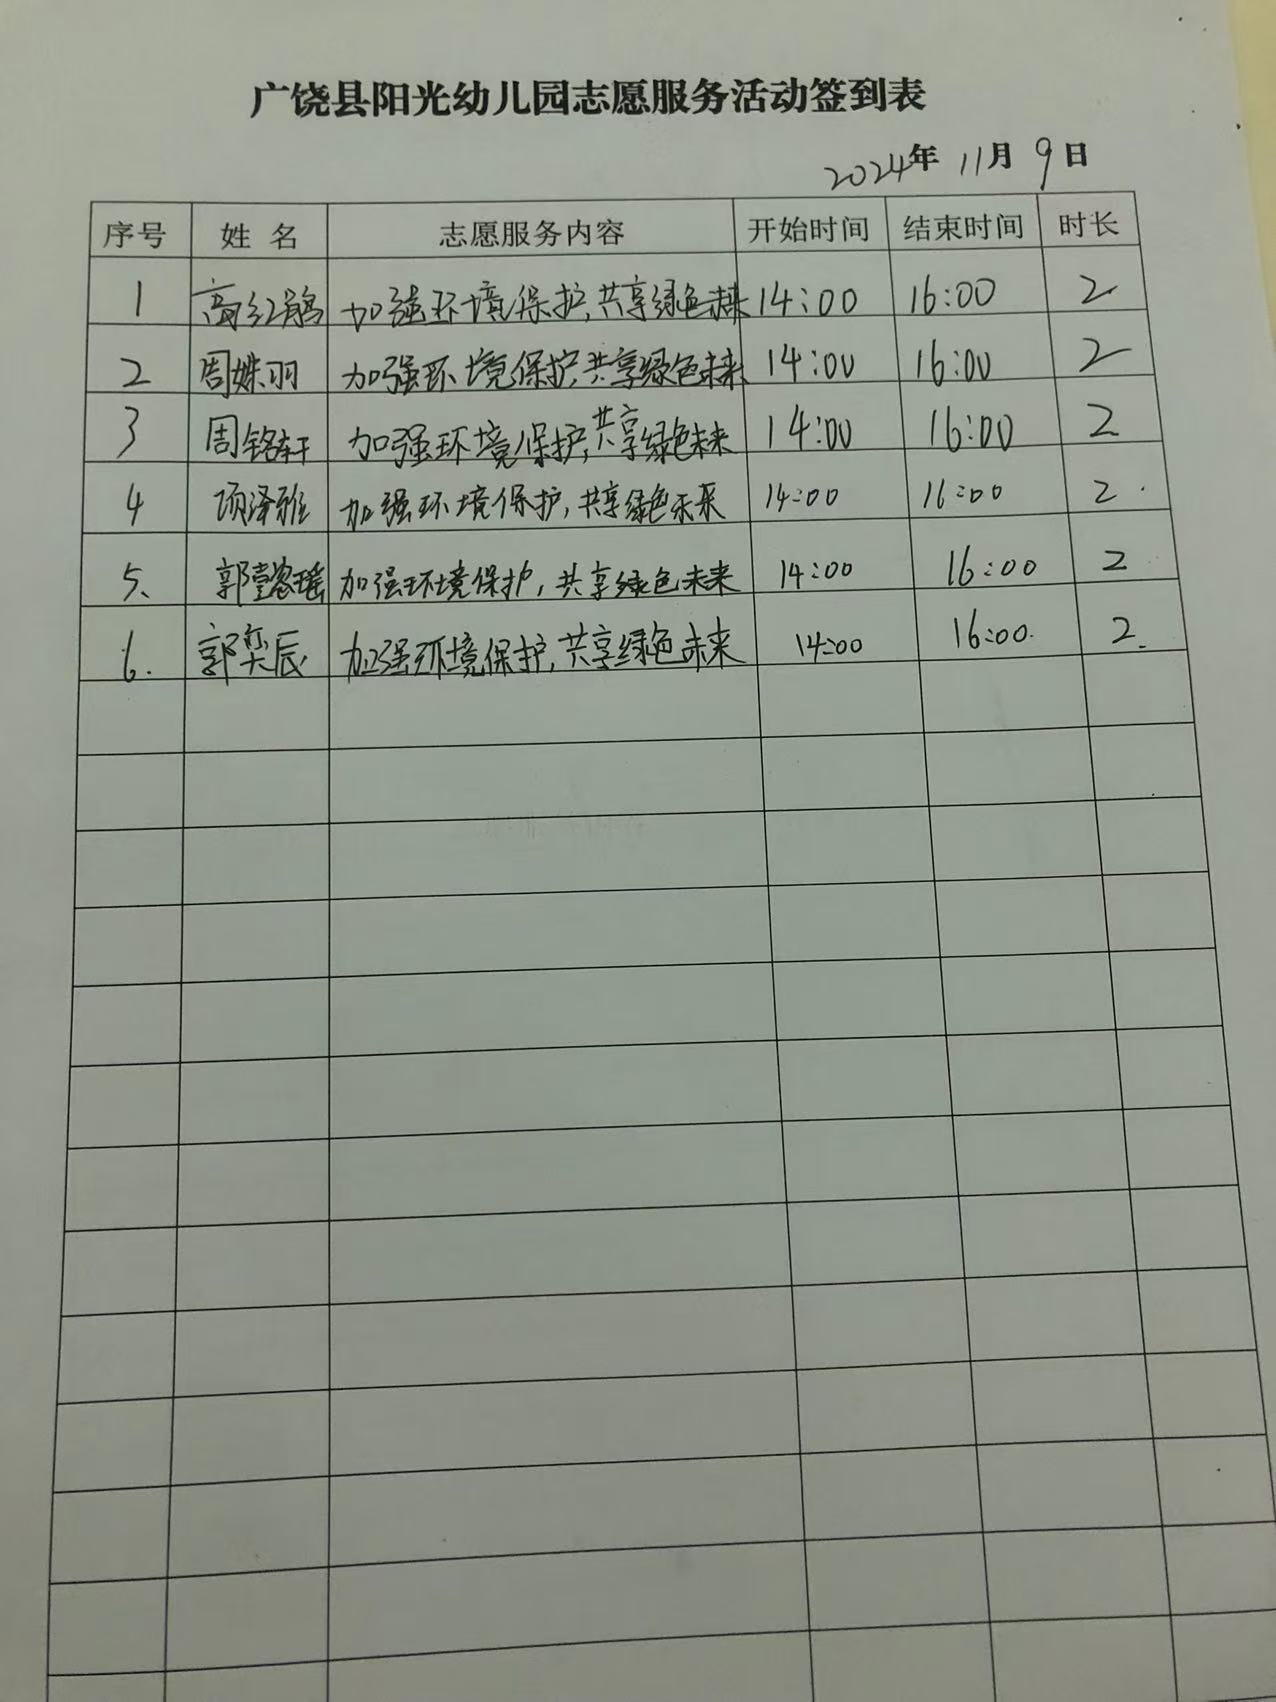 广饶县阳光幼儿园志愿服务活动签到表
2024年 11月 9日
序号 姓名 志愿服务内容 开始时间 结束时间 时长
1 高红鹃 加强环境保护,共享绿色未来 14:00 16:00 2
2 周姝羽 加强环境保护,共享绿色未来 14:00 16:00 2
3 周铭轩 加强环境保护,共享绿色未来 14:00 16:00 2
4 项泽雅 加强环境保护,共享绿色未来 14:00 16:00 2.
5、 加强环境保护,共享绿色未来 14:00 16:00 2
6. 郭奕辰 加强环境保护,共享绿色未来 14:00 16:00. 2.